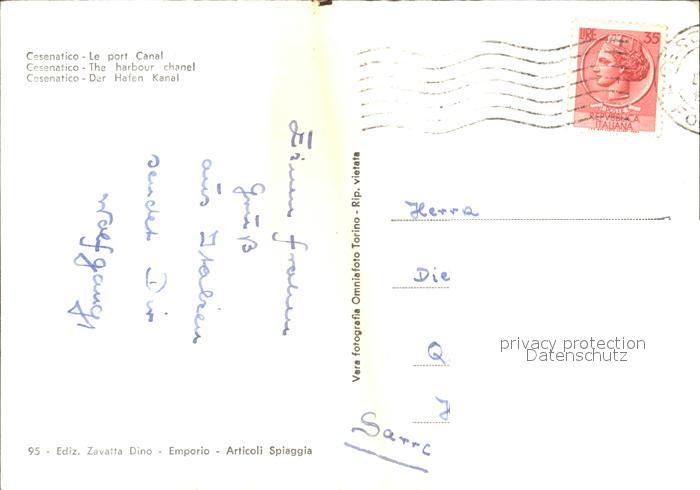 Cesenatico - Le port Canal
Cesenatico - The harbour chanel
Cesenatico - Der Hafen Kanal
Einen frohen
Gruß
aus Italien
sendet Dir
Wolfgang
95 - Ediz. Zavatta Dino - Emporio - Articoli Spiaggia
Vera fotografia Omniafoto Torino - Rip. vietata
LIRE 35
POSTE
REPVBBLICA
ITALIANA
Herrn
Die
privacy protection
Datenschutz